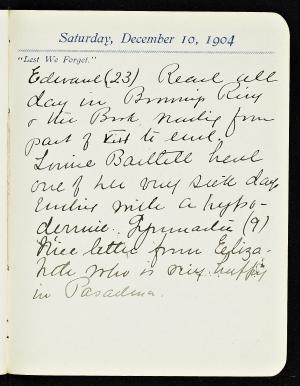 Saturday, December 10, 1904
"Lest We Forget."
Edward (23) Read all
day in Browning Ring
& the Book reading from
part of to end.
Louise Bartlett had
one of her very sick days
ending with a hypo-
dermic. Gymnastic (9)
Nice letter from Eliza-
beth who is very happy
in Pasadena.